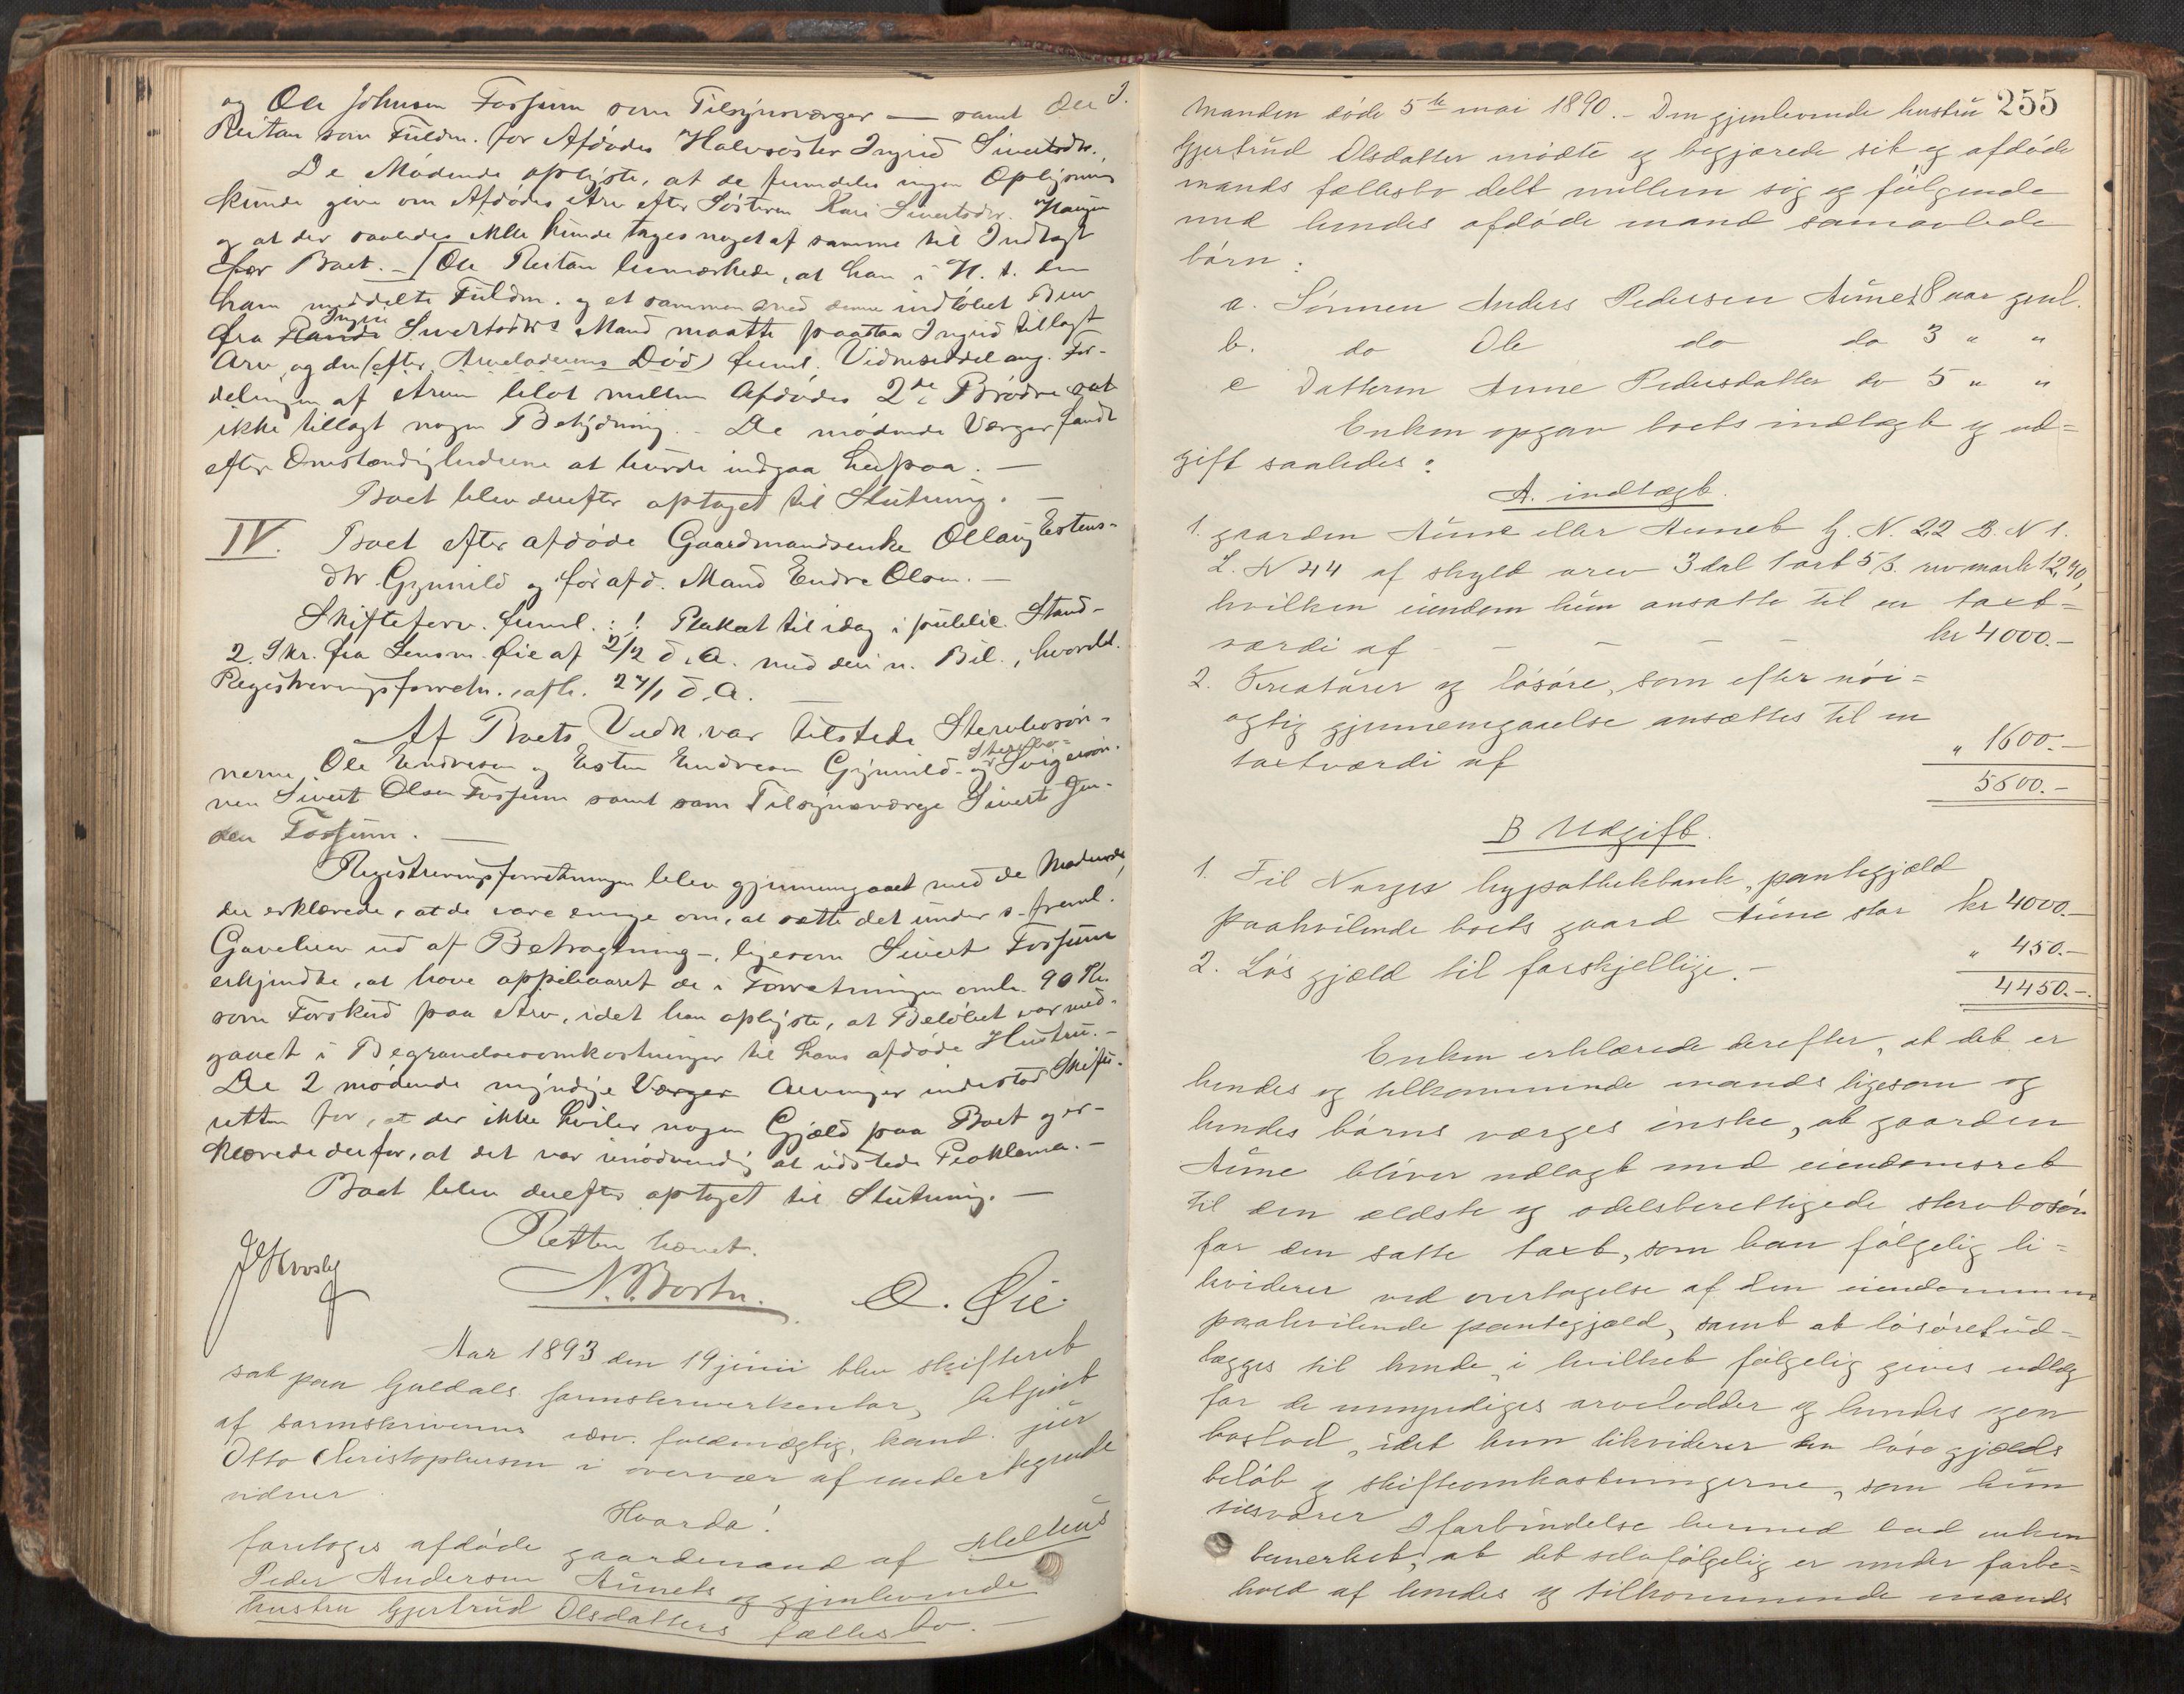 og Ole Johnsen Fossum som Tilsynsværger — samt Ole J.
Reitan som Fuldm. for Afdødes Halvsøster Ingrid Sivertsdtr.
De Mødende oplyste, at de fremdeles ingen Oplysning
kunde give om Afdødes Arv efter Søsteren Kari Sivertsdtr. Haugen
og at der saaledes ikke kunde tages noget af samme til Indtægt
for Boet. — Ole Reitan bemærkede, at han i H. t. den
ham meddelte Fuldm. og et sammen med denne indløbet Brev
fra Randi Ingrid Sivertsdtrs Mand maatte paastaa Ingrid tillagt
Arv, og den (efter Arveladerens Død) freml. Vidneseddel ang. For-
delingen af Arven blot mellem Afdødes 2de Brødre sat
ikke tillagt nogen Betydning. — De mødende Værger fandt
efter Omstændighederne at burde indgaa herpaa. —
Boet blev derefter optaget til Slutning. —
IV. Boet efter afdøde Gaardmandsenke Ollaug Estens-
dtr Gynnild og før afd. Mand Endre Olsen. —
Skifteforv. freml. : ! Plakat til idag i public. Stand-
2. Skr. fra Lensm. Øie af 2/2 d. A. med den n. Bil., hvorbl.
Registreringsforretn. afh. 27/1 d. A. —
Af Boets Vedk. var tilstede Stervbosøn-
nerne Ole Endresen og Esten Endresen Gynnild og Stervbo- Svigersøn-
nen Sivert Olsen Fossum samt som Tilsynsværge Sivert Jen-
sen Fossum. —
Registreringsforretningen blev gjennemgaaet med de Mødende,
der erklærede, at de vare enige om, at sætte det under s. freml.
Gavebrev ud af Betragtning —, ligesom Sivert Fossum
erkjendte, at have oppebaaret de i Forretningen omh. 90 Kr.
som Forskud paa Arv, idet han oplyste, at Beløbet var med-
gaaet i Begravelsesomkostninger til hans afdøde Hustru. —
De 2 mødende myndige Værger Arvinger indestod Skifte-
retten for, at der ikke hviler nogen Gjæld paa Boet og er-
klærede derfor, at det var unødvendig at udstede Proklama. —
Boet blev derefter optaget til Slutning. —
Retten hævet.
N. Bortn. O. Øie
Aar 1893 den 19 juni blev skifteret
sat paa Guldals sorenskriverkontor, betjent
af sorenskriverens edsv. fuldmægtig, kand. jur
Otto Christophersen i overvær af undertegnede
vidner
Hvorda!
foretoges afdøde gaardmand af Melhus
Peder Andersen Aunets og gjenlevende
hustru Gjertrud Olsdatters fællesbo. —
255
Manden døde 5te mai 1890. — Den gjenlevende hustru
Gjertrud Olsdatter mødte og begjærede sit og afdøde
mands fællesbo delt mellem sig og følgende
med hendes afdøde mand samavlede
børn:
a. Sønnen Anders Pedersen Aunet 8 aar gml.
b. do Ole do do 3 " "
c Datteren Anne Pedersdatter do 5 " "
Enken opgav boets indtægt og ud=
gift saaledes:
A. indtægt.
1. gaarden Aune eller Aunet G. N. 22 B. N 1.
L. N 44 af skyld arev 3 dal 1 ort 5 s. rev mark 12,90,
hvilken eiendom hun ansatte til en taxt=
værdi af — — — — kr 4000.—
2. Kreaturer og løsøre, som efter nøi=
agtig gjennemgaaelse ansættes til en
taxtværdi af " 1600.—
5600.—
B Udgift.
1. Til Norges hypothekbank, pantegjæld
paahvilende boets gaard Aune stor kr 4000.—
2. Løs gjæld til forskjellige. — " 450.—
4450.—.
Enken erklærede derefter, at det er
hendes og tilkommende mands ligesom og
hendes børns værges ønske, at gaarden
Aune bliver udlagt med eiendomsret
til den ældste og odelsberettigede stervbosøn
for den satte taxt, som han følgelig li=
kviderer ved overtagelse af den eiendommen
paahvilende pantegjæld, samt at løsøret ud=
lægges til hende, i hvilket følgelig gives udlæg
for de umyndiges arvelodder og hendes egen
boslod, idet hun likviderer den løse gjælds
beløb og skifteomkostningerne, som hun
tilsvarer I forbindelse hermed bad enken
bemerket, at det selvfølgelig er under forbe=
hold af hendes og tilkommende mands